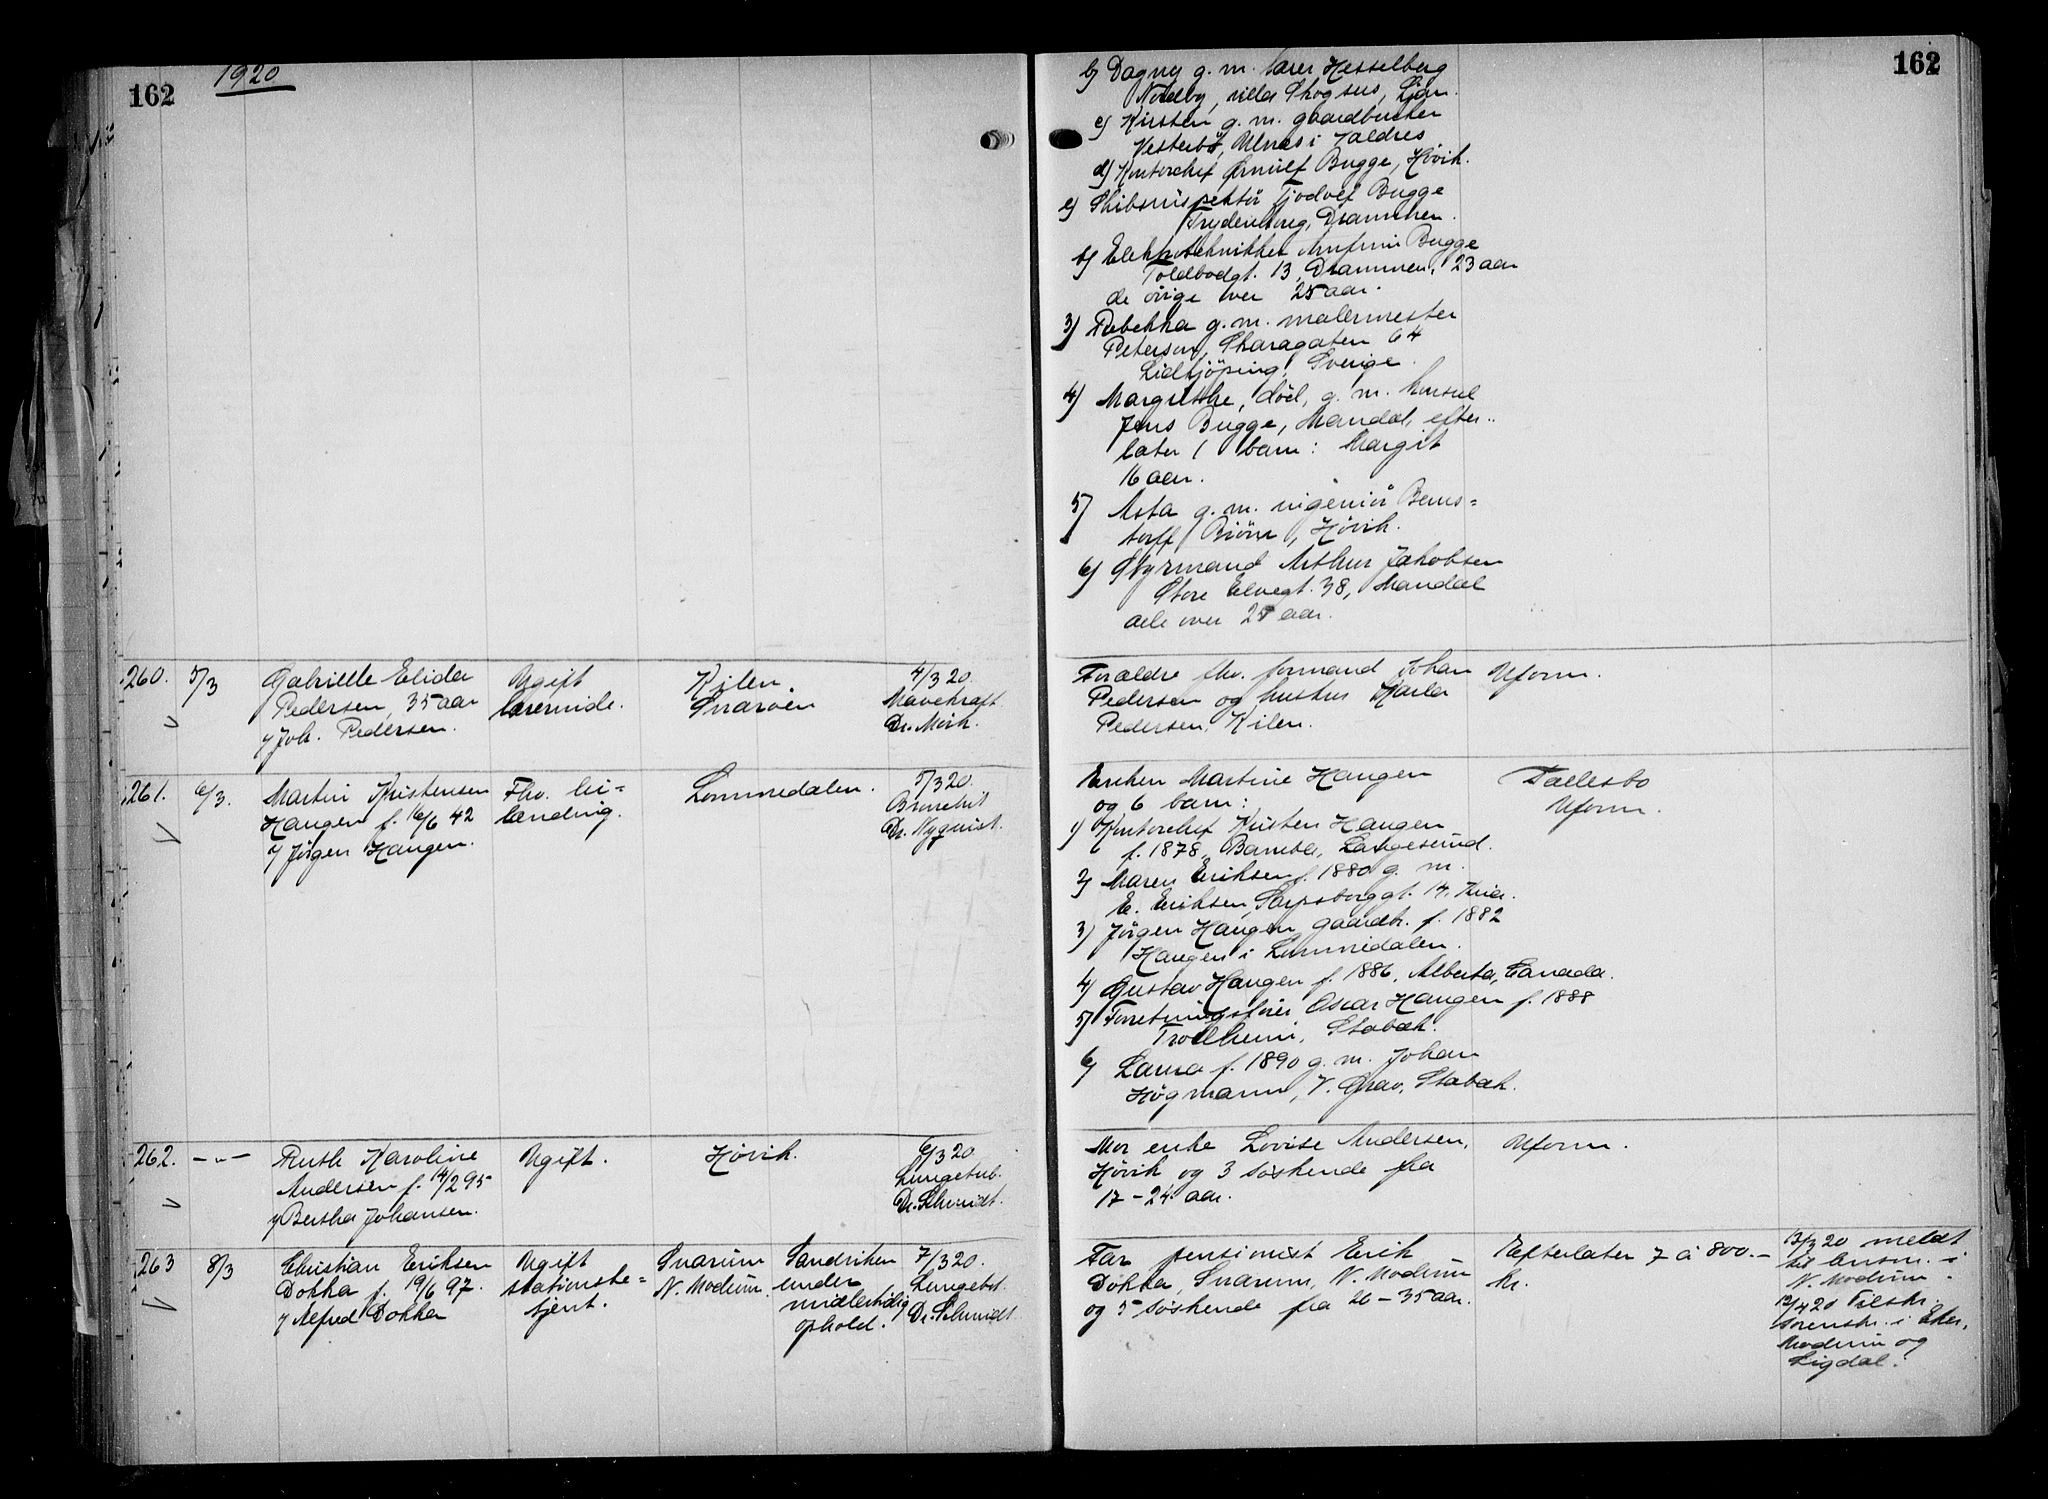 162
1920
260. 5/3
Gabrielle Elida
Pedersen, 35 aar
y Joh. Pedersen.
Ugift
lærerinde.
Kilen.
Snarøen
4/3 20
Mavekræft
Dr. Mörk.
261. 6/3.
Martin Kristensen
Haugen f. 16/6 42
y Jørgen Haugen.
Fhv. lei=
lænding.
Lommedalen.
5/3 20.
Dr. Nyquist.
262. -"-
Ruth Karoline
Andersen f. 14/2 95
y Bertha Johansen.
Ugift.
Høvik.
6/3 20
Lungetub.
Dr. Schmidt.
263 8/3
Christian Eriksen
Dokka f. 19/6 97.
y Alfred Dokka
Ugift
stationsbe=
tjent.
Snarum
N. Modum.
Sandviken
under
midlertidig
ophold.
7/3 20.
Dr. Schmidt.
162
b) Dagny g. m. lærer Hesselberg
Nordby, villa
c) Kirsten g. m. gaardbruker
Vesterbø, Ulnæs i Valdres
d) Kontorchef Ørnulf Bugge, Høvik.
e) Skibsinspektør Tjodolf Bugge
Drammen.
f) Elektrotekniker Arnfinn Bugge
Toldbodgt. 13, Drammen, 23 aar
de övige over 25 aar.
3) Rebekka g. m. malermester
Peterson, Skaragatan 64
Lidkjöping, Sverige.
4) Margrethe, död, g. m. konsul
Jens Bugge, Mandal, efter..
later 1 barn: Margit
16 aar.
5) Asta g. m. ingeniör Berns=
torff Biörn, Hövik.
6) Styrmand Arthur Jakobsen
Store Elvegt. 38, Mandal
alle over 25 aar.
Forældre fhv. formand Johan
Pedersen og hustru Karla
Pedersen, Kilen.
Uform.
Enken Martine Haugen
og 6 barn:
1) Kontorchef Kristen Haugen
f. 1878, Bamble, Langesund.
2) Maren Eriksen f. 1880 g. m.
E. Eriksen, Sarpsborggt. 14, Kria.
3) Jörgen Haugen, gaardbr. f. 1882
Haugen i Lommedalen.
4) Gustav Haugen f. 1886, Alberta, Canada.
5) Forretningsfører Oscar Haugen f. 1888
Trollheim, Stabæk.
6) Laura f. 1890 g. m. Johan
Høgmann, V. Grav, Stabæk.
Fællesbo
Uform.
Mor enke Lovise Andersen,
Høvik og 3 söskende fra
17-24 aar.
Uform.
Far pensionist Erik
Dokka, Snarum, N. Modum
og 5 söskende fra 20-35 aar.
Efterlater 7 à 800.-
kr.
13/3 20 meldt
til lensm. i
N. Modum.
12/4 20 Tilskr.
sorenskr. i Eker,
Modum og
Sigdal.